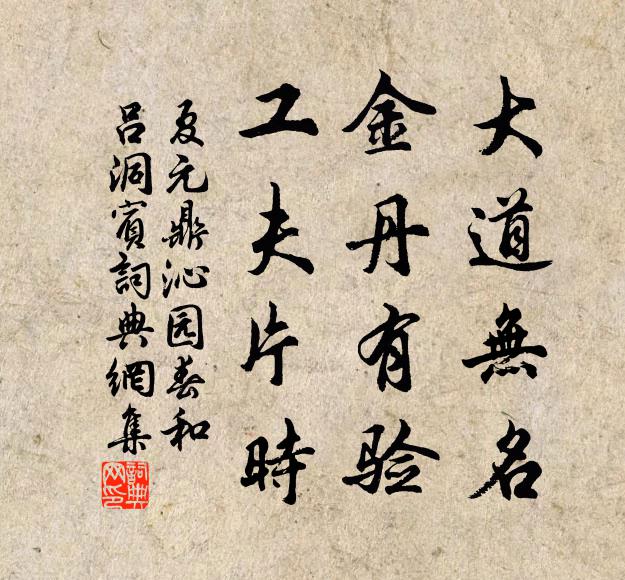 大道無名
金丹有验
工夫片時
夏元鼎沁园春和
吕洞賓詞典網集
詞典网印